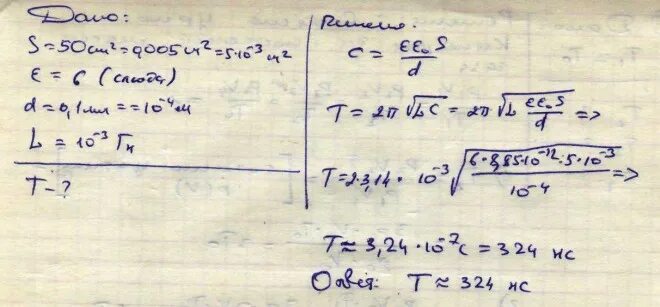 Дано:
S = 50 см² = 0,005 м² = 5·10⁻³ м²
ε = 6 (слюда)
d = 0,1 мм = = 10⁻⁴ м
L = 10⁻³ Гн
T - ?
Решение:
C = εε₀S / d
T = 2π √LC = 2π √(L εε₀S / d) =>
T = 2·3,14 · 10⁻³ √(6·8,85·10⁻¹²·5·10⁻³ / 10⁻⁴) =>
T ≈ 3,24 · 10⁻⁷ с = 324 нс
Ответ: T ≈ 324 нс